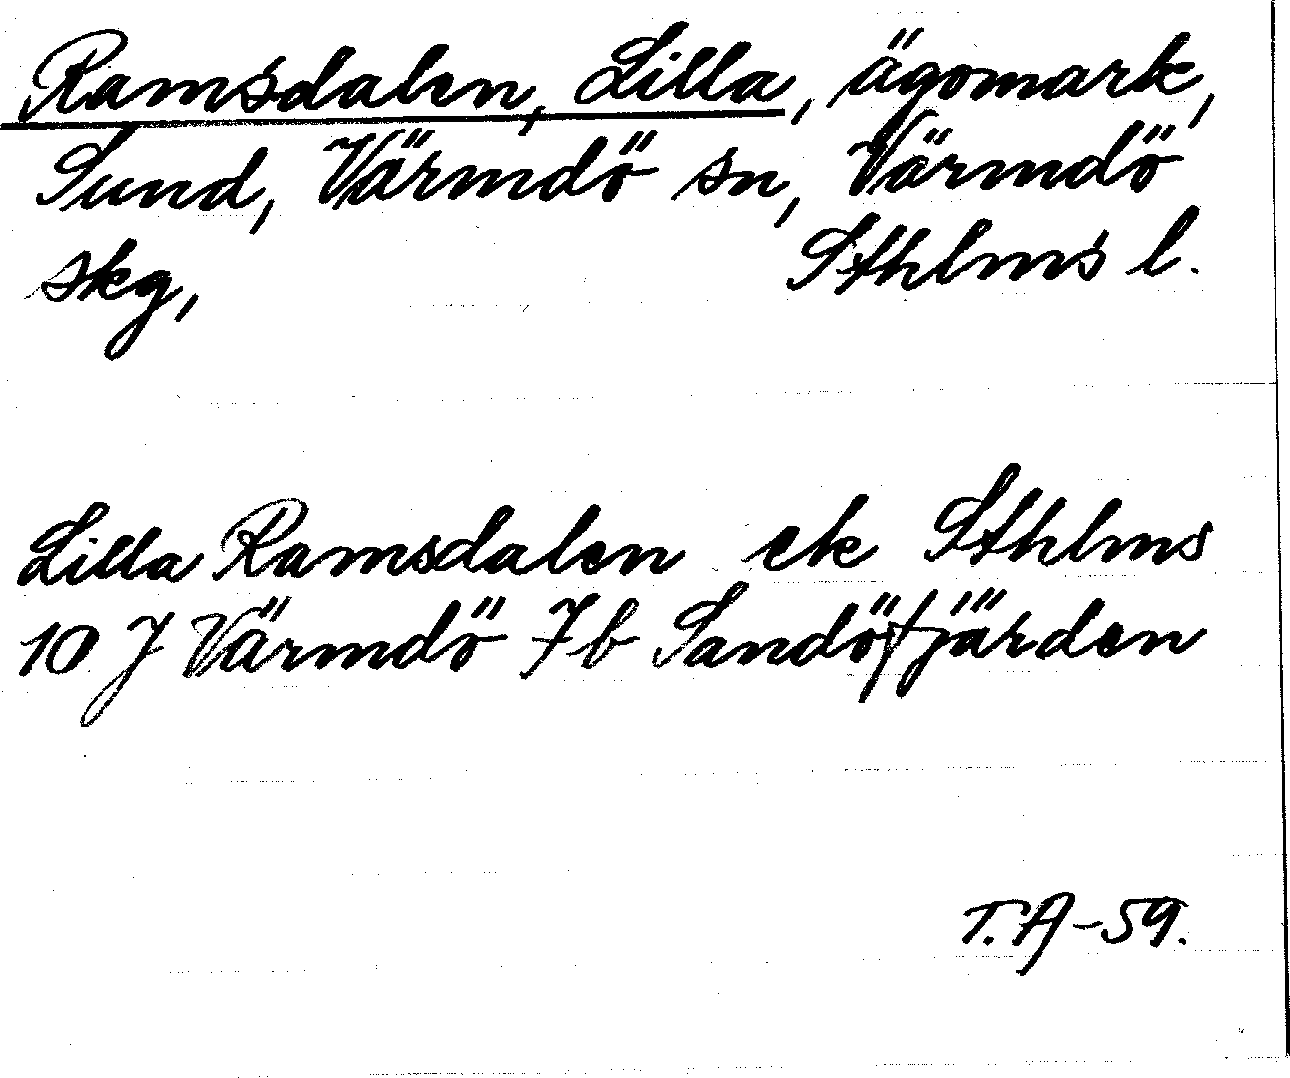 Ramsdalen, Lilla, ägomark,
Sund, Värmdö sn, Värmdö
skg, Sthlms l.
Lilla Ramsdalen ek Sthlms
10 J Värmdö 7b Sandöfjärden
T.A-59.